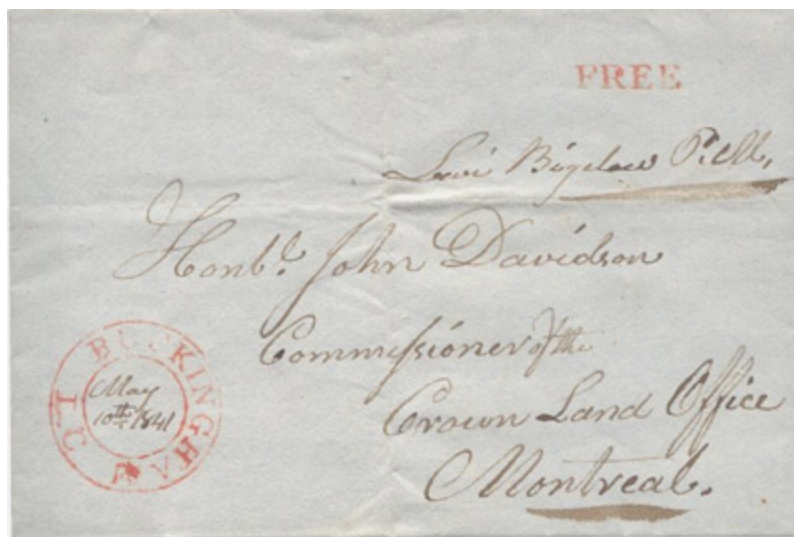 FREE
Levi Bigelow P.M.
Honbl. John Davidson
Commissioner of the
Crown Land Office
Montreal.
BUCKINGHAM
L C
May
10th 1841